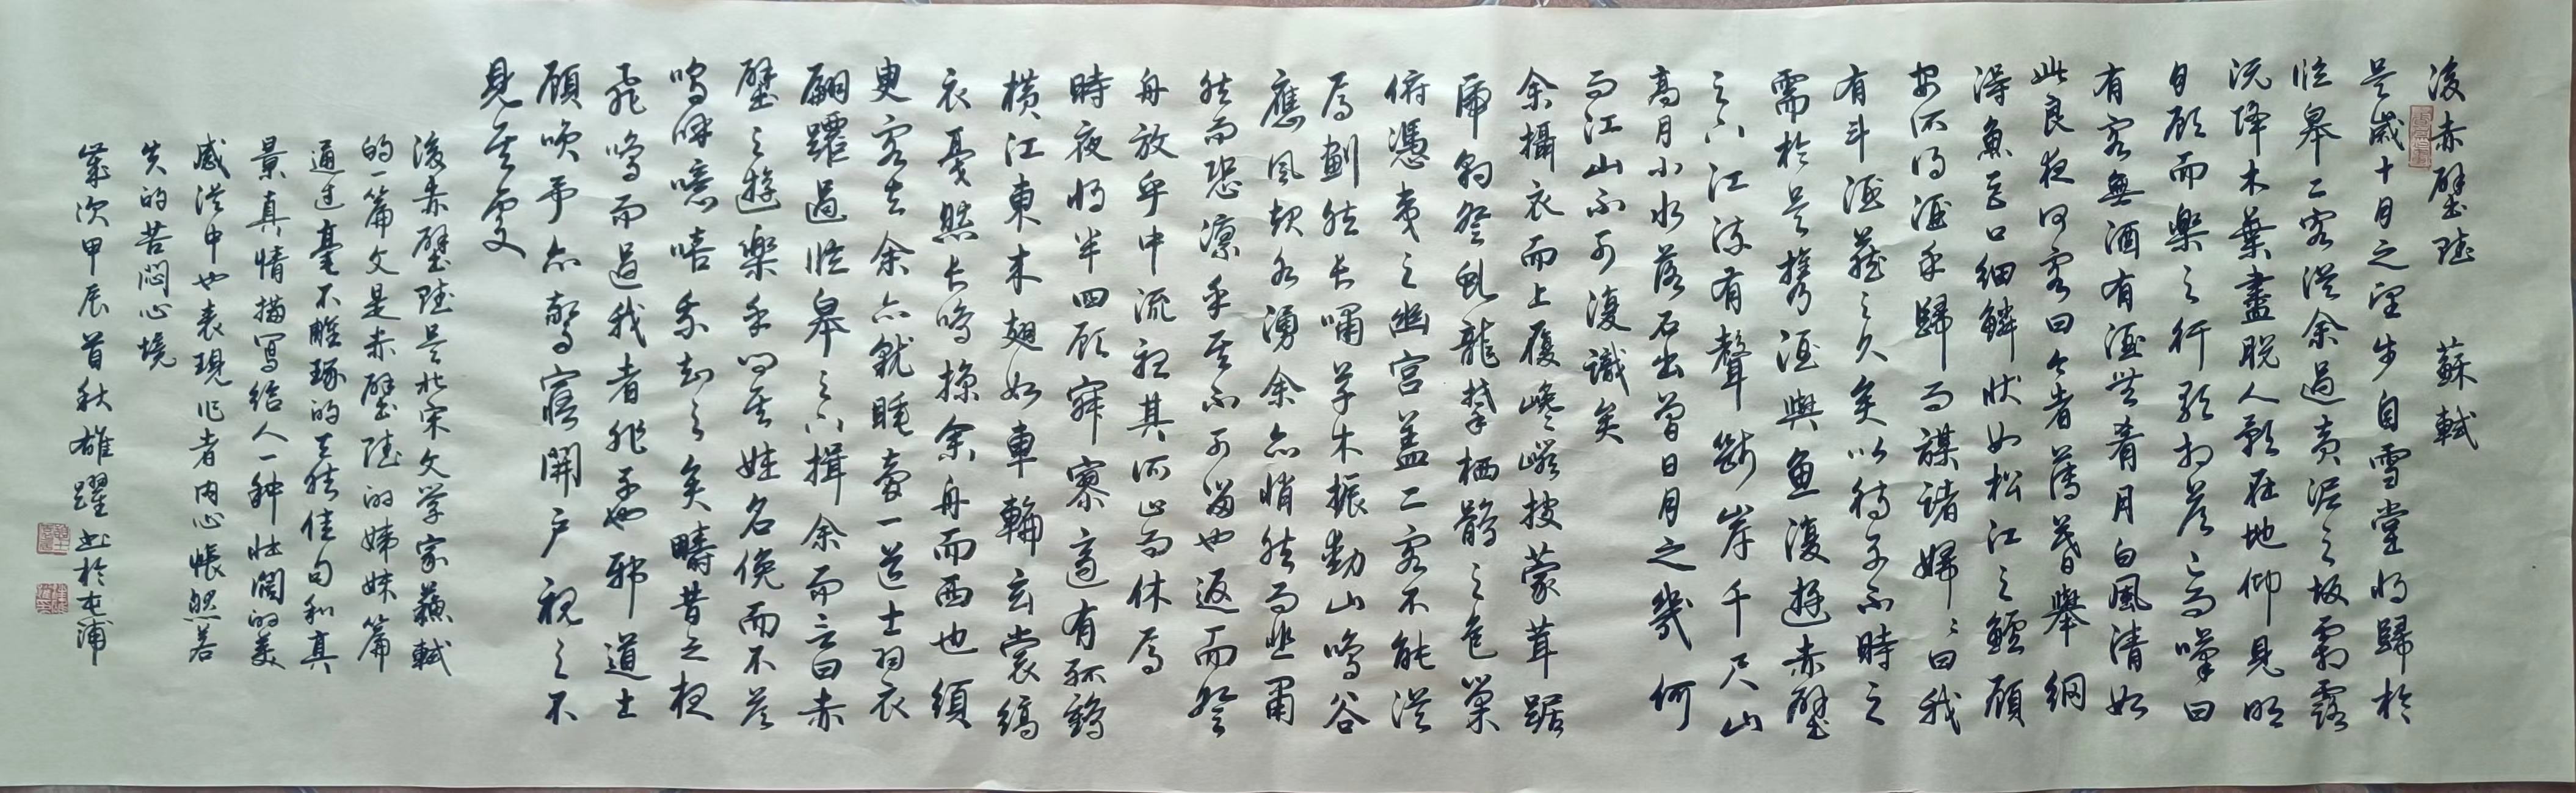 後赤壁賦 蘇軾
是歲十月之望步自雪堂將歸於
臨皋二客從余過黃泥之坂霜露
既降木葉盡脫人影在地仰見明
月顧而樂之行歌相答已而嘆曰
有客無酒有酒無肴月白風清如
此良夜何客曰今者薄暮舉網
得魚巨口細鱗狀如松江之鱸顧
安所得酒乎歸而謀諸婦婦曰我
有斗酒藏之久矣以待子不時之
需於是攜酒與魚復遊赤壁
之下江流有聲斷岸千尺山
高月小水落石出曾日月之幾何
而江山不可復識矣
余攝衣而上履巉巖披蒙茸踞
虎豹登虬龍攀栖鶻之危巢
俯馮夷之幽宮蓋二客不能從
焉劃然長嘯草木振動山鳴谷
應風起水湧余亦悄然而悲肅
然而恐凜乎其不可留也返而登
舟放乎中流聽其所止而休焉
時夜將半四顧寂寥適有孤鶴
橫江東來翅如車輪玄裳縞
衣戛然長鳴掠余舟而西也須
臾客去余亦就睡夢一道士羽衣
翩躚過臨皋之下揖余而言曰赤
壁之遊樂乎問其姓名俛而不答
嗚呼噫嘻我知之矣疇昔之夜
飛鳴而過我者非子也邪道士
顧笑予亦驚寤開戶視之不
見其處
後赤壁賦是北宋文学家蘇軾
的一篇文是赤壁賦的姊妹篇
通过毫不雕琢的天然佳句和真
景真情描写给人一种壮阔的美
感从中也表现作者内心怅然若
失的苦闷心境
歲次甲辰首秋雄躍书於屯浦